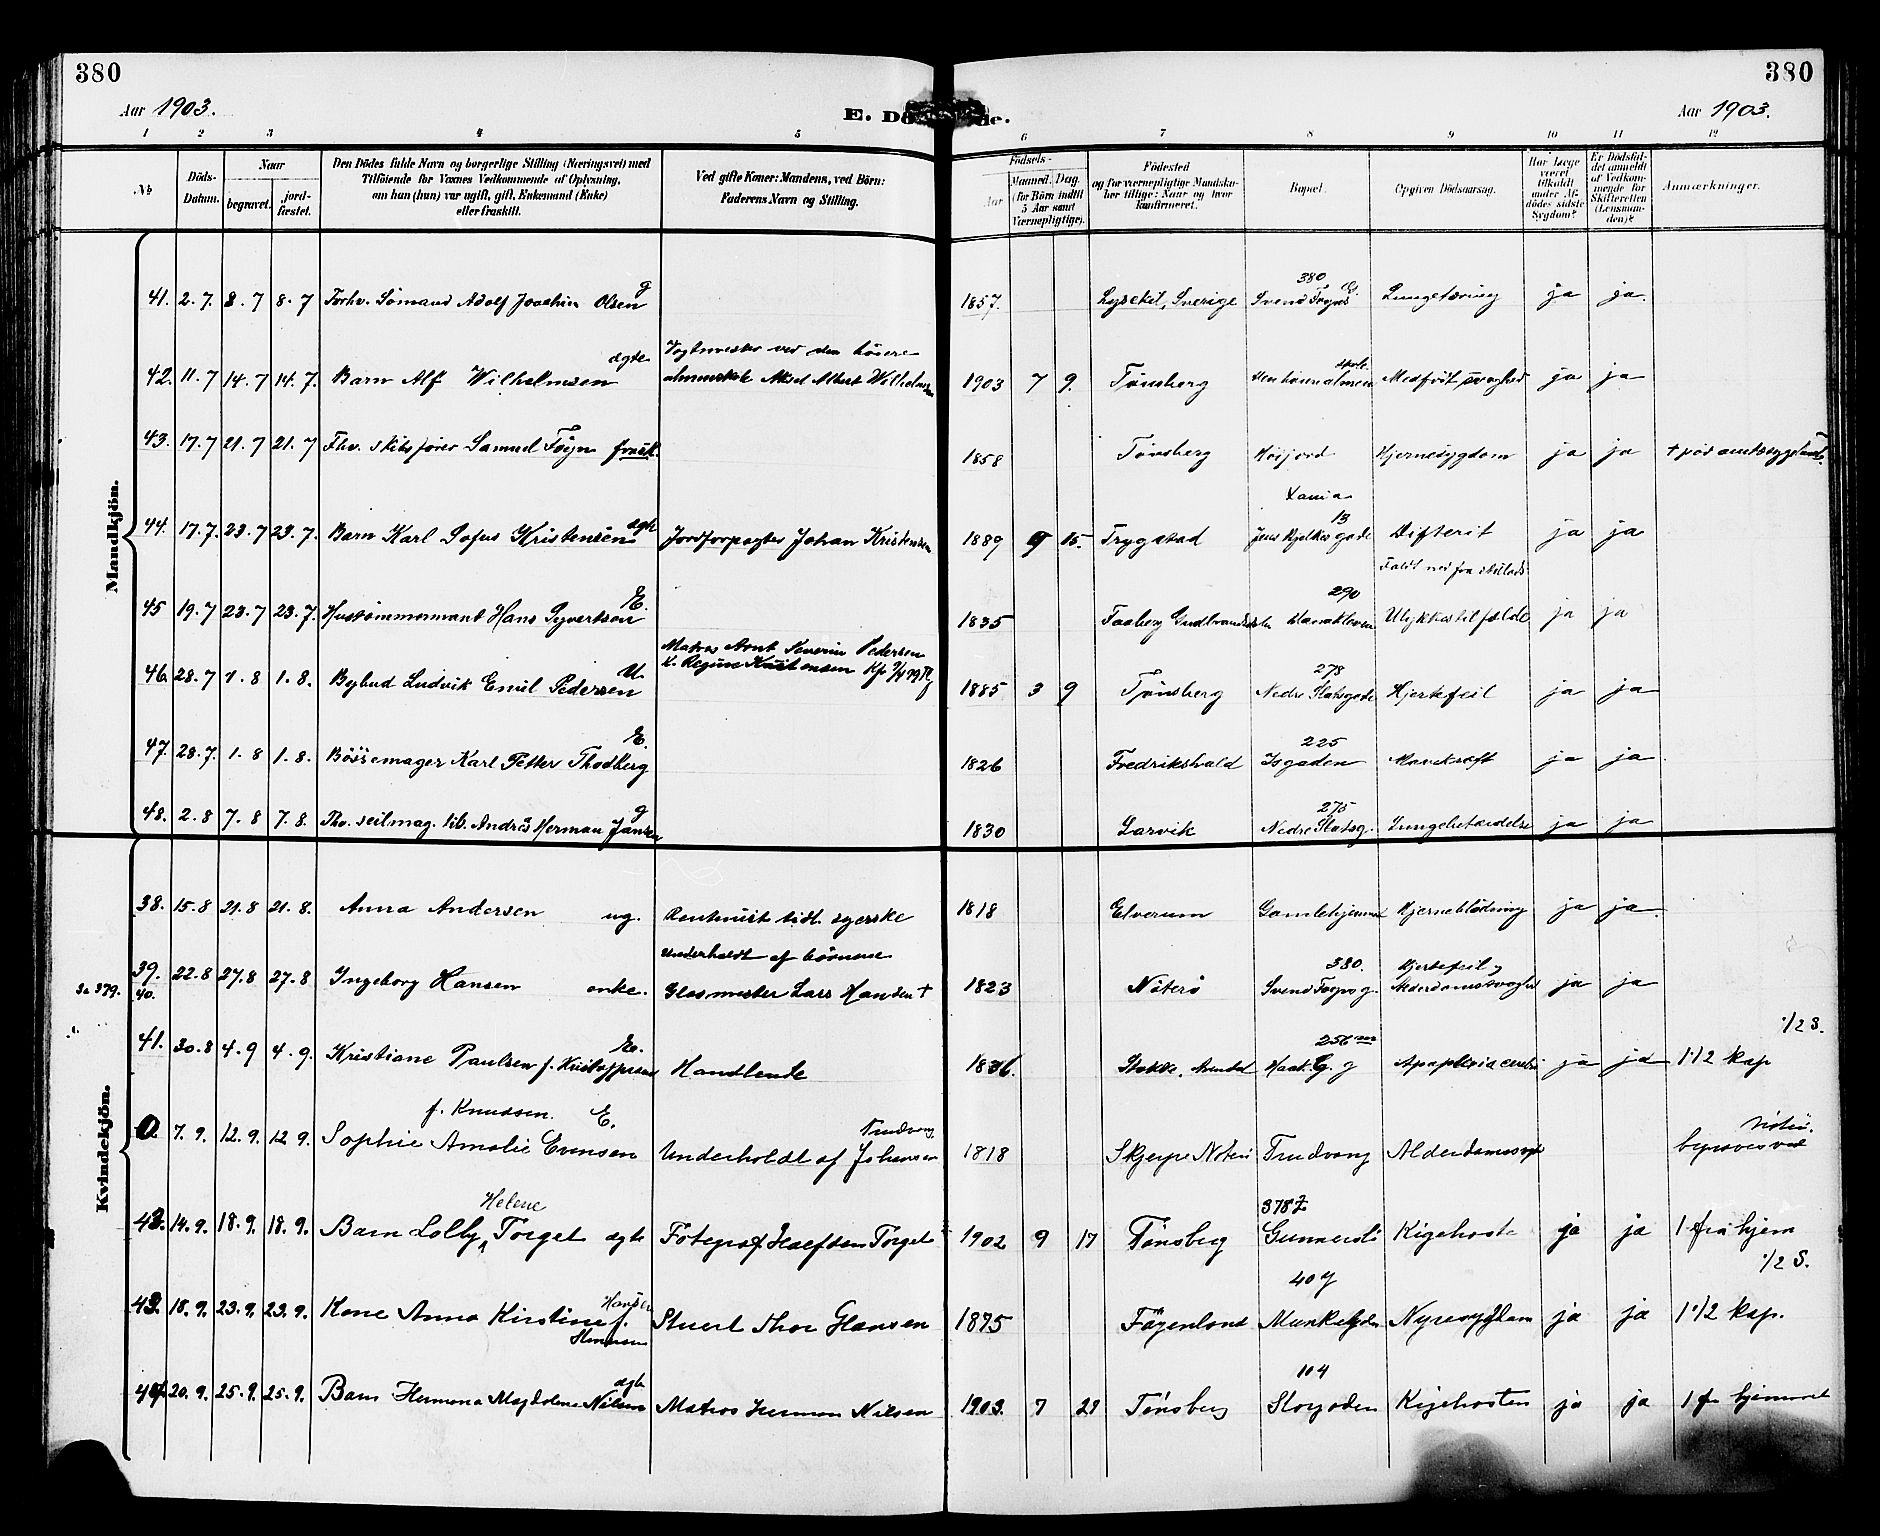 380
380
Aar 1903.
E. Dö de.
Aar 1903.
1 2 3 4 5 6 7 8 9 10 11 12
No
Döds-Datum.
Naar
begravet.
jord-fæstet.
Den Dödes fulde Navn og borgerlige Stilling (Næringsvei) med
Tilföiende for Voxnes Vedkommende af Oplysning,
om han (hun) var ugift, gift, Enkemand (Enke)
eller fraskilt.
Ved gifte Koner: Mandens, ved Börn:
Faderens Navn og Stilling.
Födsels-
Aar
Maaned. Dag.
(for Börn indtil
5 Aar samt
Værnepligtige).
Födested
og for værnepligtige Mandska-
ber tillige: Naar og hvor
konfirmeret.
Bopæl.
Opgiven Dödsaarsag.
Har Læge
været
tilkaldt
under Af-
dödes sidste
Sygdom?
Er Dödsfal-
det anmeldt
af Vedkom-
mende for
Skifteretten
(Lensman-
den)?
Anmærkninger.
Mandkjön.
41. 2. 7. 8. 7 8. 7 Forhv. Sömand Adolf Joachim Olsen g 1857. Lysekil, Sverige 380 Svend Foyns G. Lungetæring ja ja.
42. 11. 7 14. 7 14. 7. Barn Alf Wilhelmsen ægte Vagtmester ved den höiere
almenskole Aksel Albert Wilhelmsen 1903 7 9. Tönsberg den höiere almen skole Medfödt svaghed ja ja
43. 17. 7 21. 7 21. 7 Fhv. skibsförer Samuel Föyn frask. 1858 Tönsberg Hjernesygdom ja ja
44. 17. 7. 23. 7 23. 7. Barn Karl Sofus Kristensen ægte Jordforpagter Johan Kristensen 1889 9 15. Trygstad 13 Jens gade Difterit ja ja
45 19. 7 23. 7 23. 7. Hustömmermand Hans Syvertsen E. 1835 Faaberg Gudbrandsdalen 290 Faldt ned fra stillads
Ulykkestilfælde ja ja
46. 28. 7 1. 8 1. 8. Bybud Ludvik Emil Pedersen U. Matros Arnt Severin Pedersen
1885 3 9 Tjönsberg 278 Nedre Slotsgade Hjertefeil ja ja
47. 28. 7. 1. 8 1. 8. Bössemager Karl Petter Thodberg E. 1826 Fredrikshald 225 Isgaden Mavekræft ja ja
48. 2. 8 7. 8 7. 8. Fhv. seilmag. Andrés Herman Jansen g 1830 Larvik 275 Nedre Slotsg. Lungebetændelse ja ja
Kvindekjön.
38. 15. 8 21. 8 21. 8. Anna Andersen ug. tidl. syerske 1818 Elverum Gamlehjemmet Hjerneblödning ja ja.
Se 379.
39.
40. 22. 8 27. 8 27. 8 Ingeborg Hansen enke. Underholdt af börnene
Glasmester Lars Hansen † 1823 Nöterö 380. Svend Foyns g. Hjertefeil og
Alderdomssvaghed ja ja
41. 30. 8 4. 9 4. 9. Kristiane Paulsen f. Kristoffersen Handlende 1836. Stokke, 256 Haak. G. g Apoplexia cerebri ja ja 1/2 S.
1 1/2 kap
0. 7. 9. 12. 9. 12 9. Sophie Amalie Evensen f. Knudsen. E. Underholdt af Johansen Trudvang 1818 Skjerpe Nöterö Trudvang Alderdomssvagh. begraves ved Nöterö.
42. 14. 9. 18. 9. 18. 9. Barn Lolly Helene Torget ægte Fotograf Torget 1902 9 17 Tönsberg 378 Gunnersbö Kigehoste ja ja 1 fra hjem
1/2 S.
43. 18. 9. 23. 9. 23. 9. Kone Anna Kirstine Hansen f. Stuert Thor Hansen 1875 Föyenland 40 Munkegaden Nyresygdom ja ja 1 1/2 kap.
44. 20. 9. 25. 9. 25. 9. Barn Hermona Magdalene Nilsen ægte Matros Herman Nilsen 1903. 7 29 Tönsberg 104 Storgaden Kigehosten ja ja 1 fra hjemmet